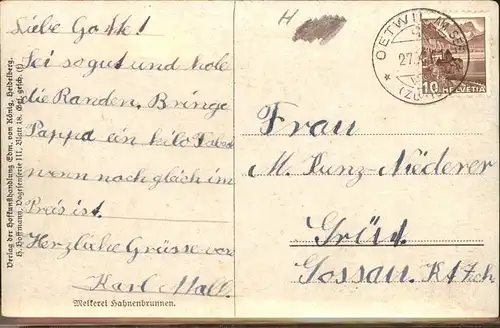 H
Liebe Gotte!
Sei so gut und hole
die Randen. Bringe
Pappa ein kilo Tabak
wenn noch gleich im
Preis ist.
Herzliche Grüsse von
Karl
Melkerei Hahnenbrunnen.
Verlag der Hofkunsthandlung Edm. von König, Heidelberg.
H. Hoffmann, Vogesenserie III, Blatt 18. Ges. gesch. (f)
OETWIL AM SEE
27.
(ZÜRICH)
10 HELVETIA
Frau
M. Kunz-Niederer
Grüt
Gossau. Kt Zch